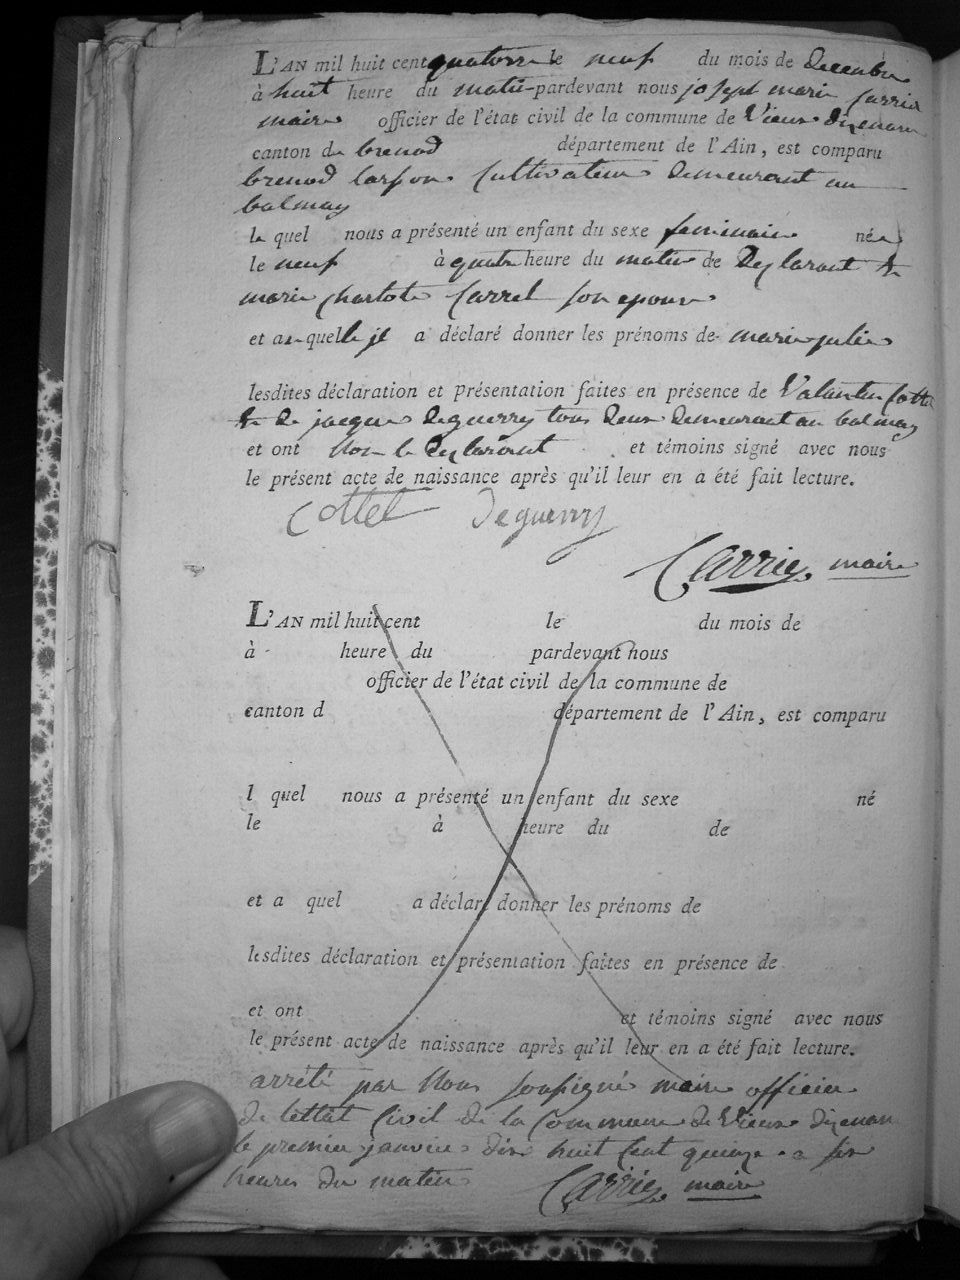 L'AN mil huit cent quatorze le neuf du mois de decembre
à huit heure du matin pardevant nous joseph marie Carrier
maire officier de l'état civil de la commune de Vieux dizenave
canton de brenod département de l'Ain, est comparu
brenod cultivateur demeurant au
balmay
le quel nous a présenté un enfant du sexe feminain née
le neuf à quatre heure du matin de Deylarant &
marie charlote Carrel son epouse
et auquelle jl a déclaré donner les prénoms de marie julie
lesdites déclaration et présentation faites en présence de Valantin Cotte
& de jacque deguerry tous deux demeurant au balmay
et ont Non le Deylarant et témoins signé avec nous
le présent acte de naissance après qu'il leur en a été fait lecture.
Cottet Deguerry
Carrier maire
L'AN mil huit cent le du mois de
à heure du pardevant nous
officier de l'état civil de la commune de
canton d département de l'Ain, est comparu
l quel nous a présenté un enfant du sexe né
le à heure du de
et a quel a déclaré donner les prénoms de
lesdites déclaration et présentation faites en présence de
et ont et témoins signé avec nous
le présent acte de naissance après qu'il leur en a été fait lecture.
arrêté par Nous soussigné maire officier
de lettat Civil de la Commune de Vieux dizenave
le premier janvier dix huit Cent quinze a six
heures du matin Carrier maire